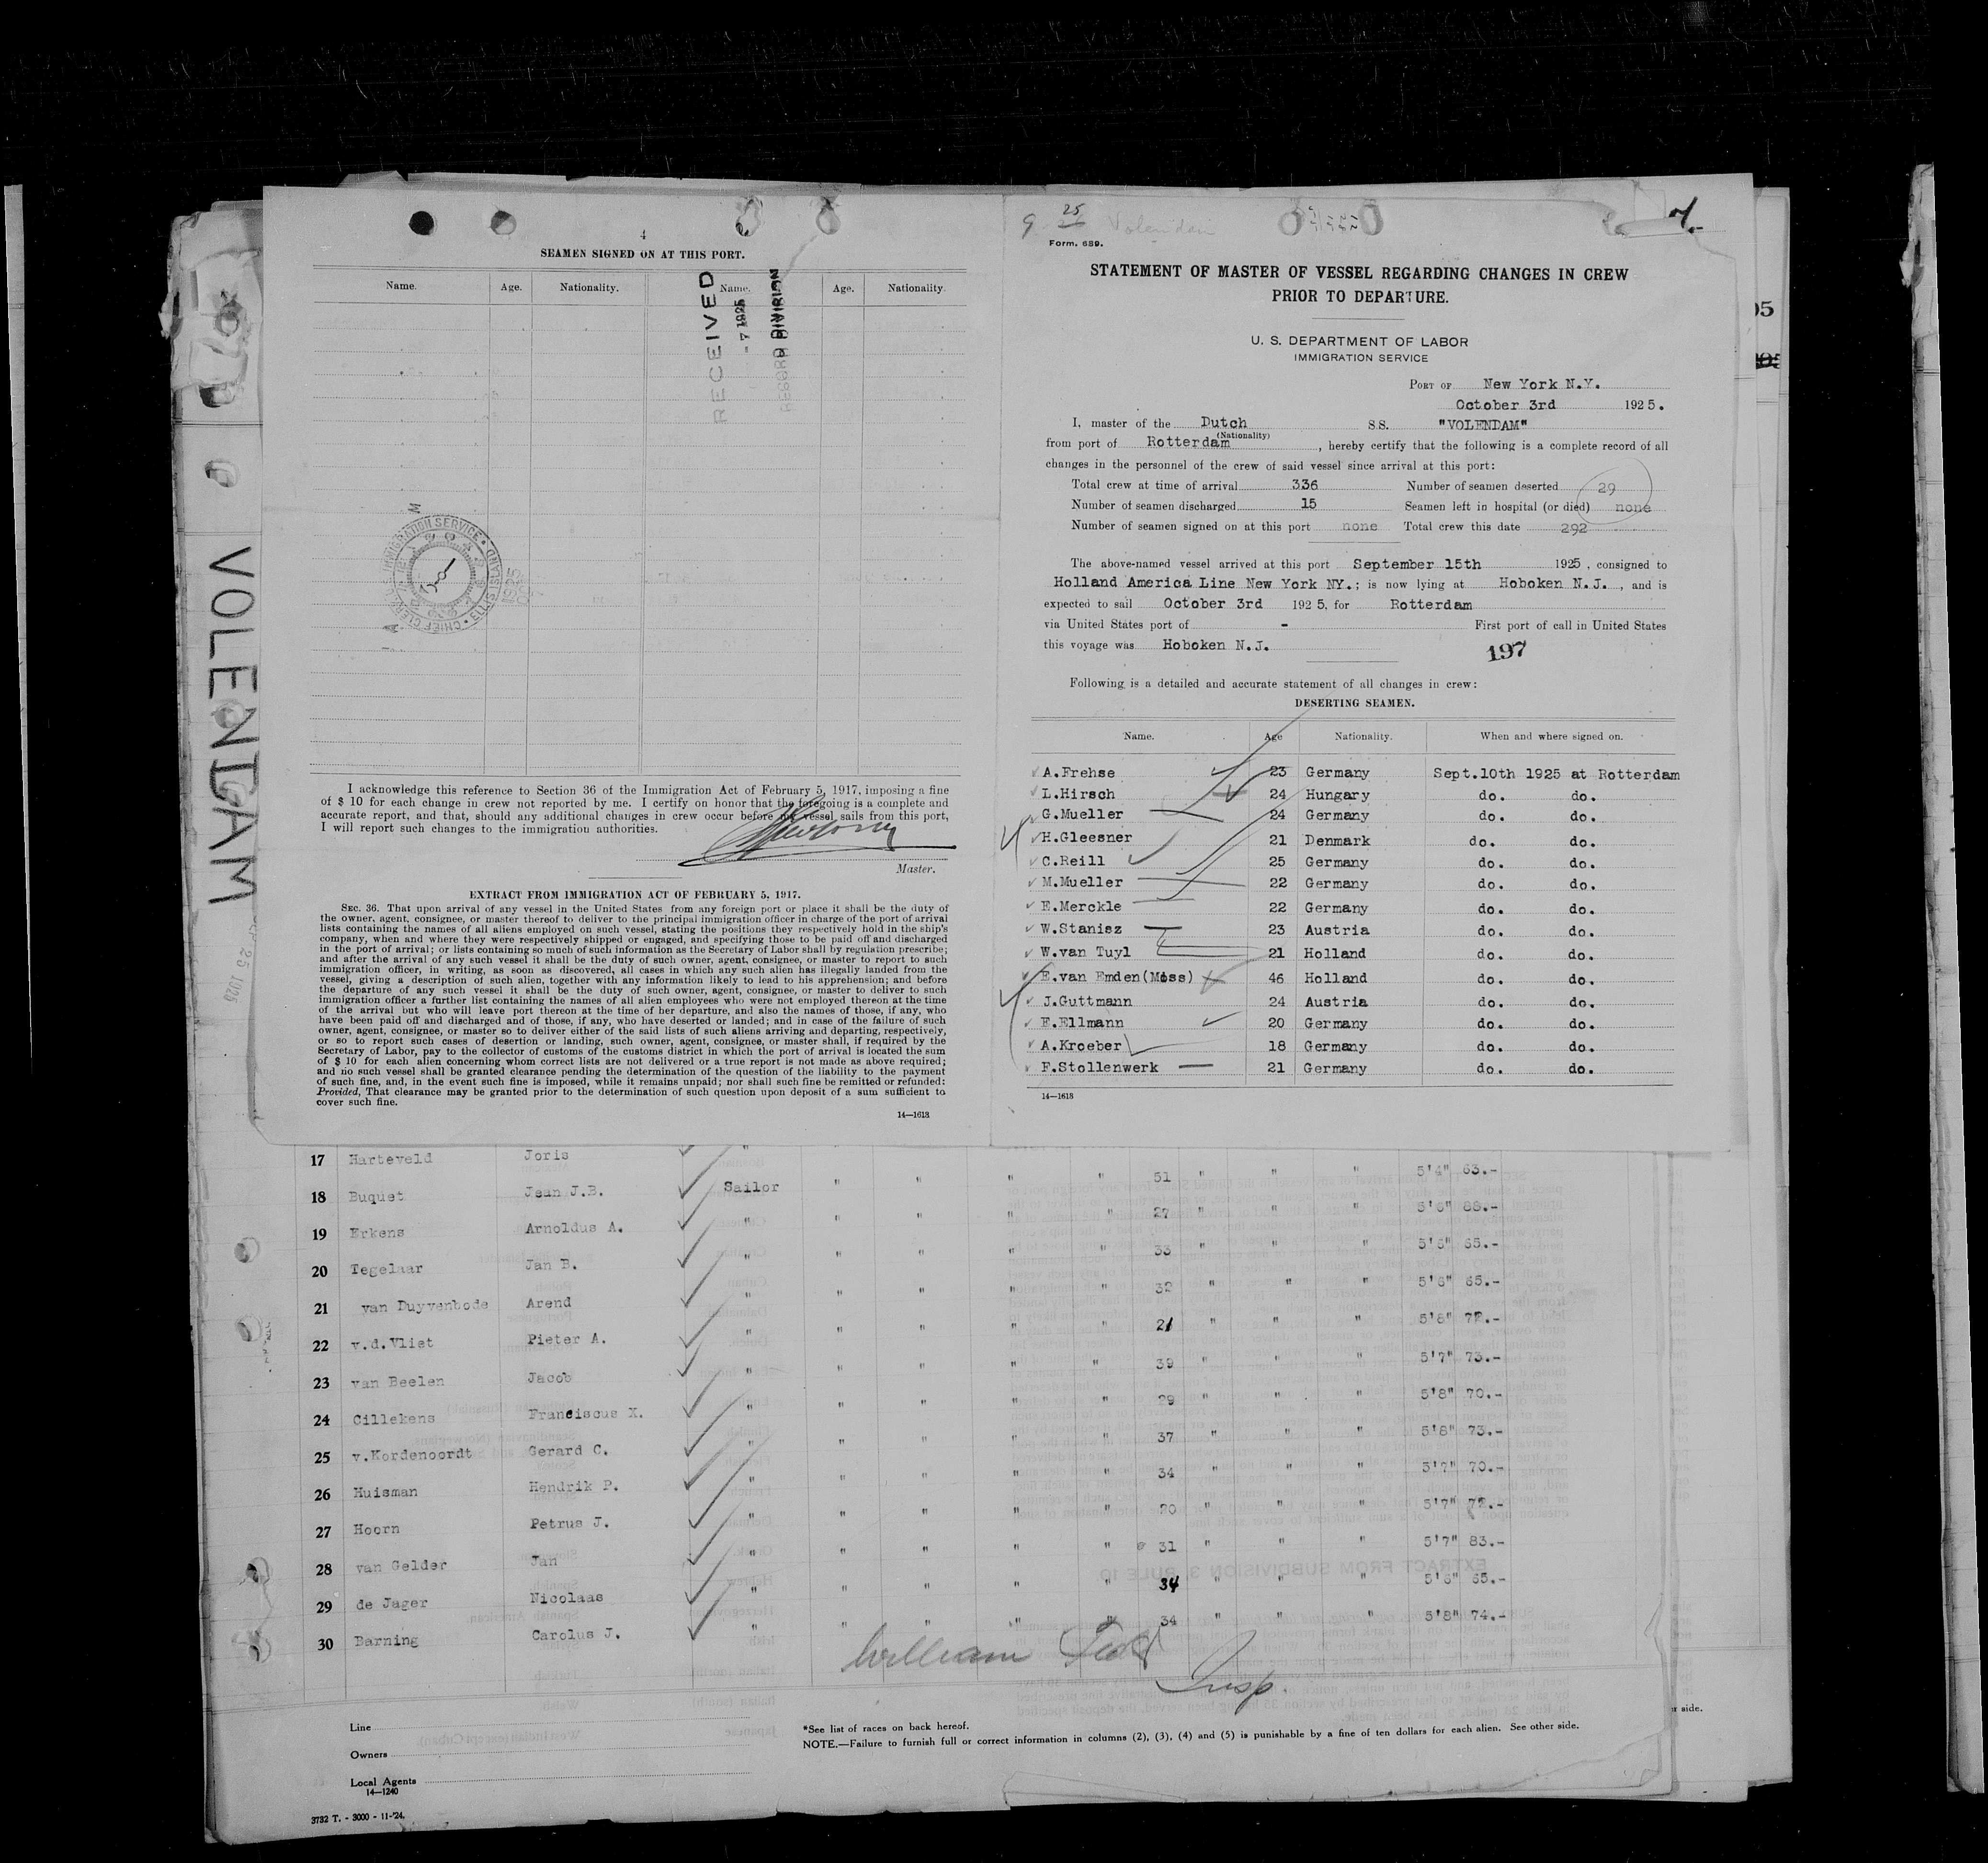 4
SEAMEN SIGNED ON AT THIS PORT.
Name. Age. Nationality. Name. Age. Nationality.
RECEIVED
- 7 1925
DIVISION
IMMIGRATION SERVICE
CHIEF CLERK
ELLIS ISLAND
A M
I acknowledge this reference to Section 36 of the Immigration Act of February 5, 1917, imposing a fine
of $ 10 for each change in crew not reported by me. I certify on honor that the foregoing is a complete and
accurate report, and that, should any additional changes in crew occur before my vessel sails from this port,
I will report such changes to the immigration authorities.
Master.
EXTRACT FROM IMMIGRATION ACT OF FEBRUARY 5, 1917.
SEC. 36. That upon arrival of any vessel in the United States from any foreign port or place it shall be the duty of
the owner, agent, consignee, or master thereof to deliver to the principal immigration officer in charge of the port of arrival
lists containing the names of all aliens employed on such vessel, stating the positions they respectively hold in the ship's
company, when and where they were respectively shipped or engaged, and specifying those to be paid off and discharged
in the port of arrival; or lists containing so much of such information as the Secretary of Labor shall by regulation prescribe;
and after the arrival of any such vessel it shall be the duty of such owner, agent, consignee, or master to report to such
immigration officer, in writing, as soon as discovered, all cases in which any such alien has illegally landed from the
vessel, giving a description of such alien, together with any information likely to lead to his apprehension; and before
the departure of any such vessel it shall be the duty of such owner, agent, consignee, or master to deliver to such
immigration officer a further list containing the names of all alien employees who were not employed thereon at the time
of the arrival but who will leave port thereon at the time of her departure, and also the names of those, if any, who
have been paid off and discharged and of those, if any, who have deserted or landed; and in case of the failure of such
owner, agent, consignee, or master so to deliver either of the said lists of such aliens arriving and departing, respectively,
or so to report such cases of desertion or landing, such owner, agent, consignee, or master shall, if required by the
Secretary of Labor, pay to the collector of customs of the customs district in which the port of arrival is located the sum
of $ 10 for each alien concerning whom correct lists are not delivered or a true report is not made as above required;
and no such vessel shall be granted clearance pending the determination of the question of the liability to the payment
of such fine, and, in the event such fine is imposed, while it remains unpaid; nor shall such fine be remitted or refunded:
Provided, That clearance may be granted prior to the determination of such question upon deposit of a sum sufficient to
cover such fine.
14—1618
VOLENDAM
25 1925
9 25 Volendam
7.-
Form. 689.
STATEMENT OF MASTER OF VESSEL REGARDING CHANGES IN CREW
PRIOR TO DEPARTURE.
U. S. DEPARTMENT OF LABOR
IMMIGRATION SERVICE
PORT OF New York N.Y.
October 3rd 1925.
I, master of the Dutch S.S. "VOLENDAM"
(Nationality)
from port of Rotterdam, hereby certify that the following is a complete record of all
changes in the personnel of the crew of said vessel since arrival at this port:
Total crew at time of arrival 336 Number of seamen deserted 29
Number of seamen discharged 15 Seamen left in hospital (or died) none
Number of seamen signed on at this port none Total crew this date 292
The above-named vessel arrived at this port September 15th 1925, consigned to
Holland America Line New York NY.; is now lying at Hoboken N.J., and is
expected to sail October 3rd 1925, for Rotterdam
via United States port of - First port of call in United States
this voyage was Hoboken N.J.
197
Following is a detailed and accurate statement of all changes in crew:
DESERTING SEAMEN.
Name. Age Nationality. When and where signed on.
A.Frehse 23 Germany Sept.10th 1925 at Rotterdam
L.Hirsch 24 Hungary do. do.
G.Mueller 24 Germany do. do.
H.Gleesner 21 Denmark do. do.
C.Reill 25 Germany do. do.
M.Mueller 22 Germany do. do.
E.Merckle 22 Germany do. do.
W.Stanisz 23 Austria do. do.
W.van Tuyl 21 Holland do. do.
E.van Emden(Miss) 46 Holland do. do.
J.Guttmann 24 Austria do. do.
F.Ellmann 20 Germany do. do.
A.Kroeber 18 Germany do. do.
F.Stollenwerk 21 Germany do. do.
14—1618
17 Harteveld Joris " 51 " " " 5'4" 63.-
18 Buquet Jean J.B. Sailor " " " " 27 " " " 5'6" 68.-
19 Erkens Arnoldus A. " " " " " 33 " " " 5'6" 65.-
20 Tegelaar Jan B. " " " " " 32 " " " 5'6" 65.-
21 van Duyvenbode Arend " " " " " 21 " " " 5'8" 72.-
22 v.d.Vliet Pieter A. " " " " " 39 " " " 5'7" 73.-
23 van Beelen Jacob " " " " " 29 " " " 5'8" 70.-
24 Cillekens Franciscus X. " " " " " 37 " " " 5'8" 73.-
25 v.Kordenoordt Gerard C. " " " " " 34 " " " 5'7" 70.-
26 Huisman Hendrik P. " " " " " 20 " " " 5'7" 72.-
27 Hoorn Petrus J. " " " " " 31 " " " 5'7" 83.-
28 van Gelder Jan " " " " " 34 " " " 5'6" 65.-
29 de Jager Nicolaas " " " " " 34 " " " 5'8" 74.-
30 Barning Carolus J. "
William
Insp.
Line
Owners
Local Agents
14—1240
*See list of races on back hereof.
NOTE.—Failure to furnish full or correct information in columns (2), (3), (4) and (5) is punishable by a fine of ten dollars for each alien. See other side.
r side.
3732 T. - 3000 - 11-'24.